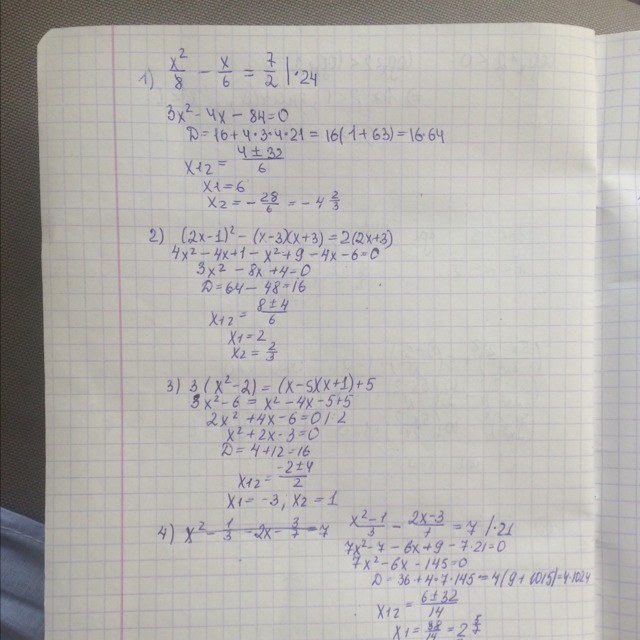 1) x²/8 − x/6 = 7/2 |·24
3x² − 4x − 84 = 0
D = 16 + 4·3·4·21 = 16(1 + 63) = 16·64
x12 = (4 ± 32)/6
x1 = 6
x2 = −28/6 = −4 2/3
2) (2x−1)² − (x−3)(x+3) = 2(2x+3)
4x² − 4x + 1 − x² + 9 − 4x − 6 = 0
3x² − 8x + 4 = 0
D = 64 − 48 = 16
x12 = (8 ± 4)/6
x1 = 2
x2 = 2/3
3) 3(x²−2) = (x−5)(x+1) + 5
3x² − 6 = x² − 4x − 5 + 5
2x² + 4x − 6 = 0 |:2
x² + 2x − 3 = 0
D = 4 + 12 = 16
x12 = (−2 ± 4)/2
x1 = −3, x2 = 1
4) x² − 1/3 − 2x − 3/7 = 7
(x²−1)/3 − (2x−3)/7 = 7 |·21
7x² − 7 − 6x + 9 − 7·21 = 0
7x² − 6x − 145 = 0
D = 36 + 4·7·145 = 4(9 + 1015) = 4·1024
x12 = (6 ± 32)/14
x1 = 38/14 = 2 5/7